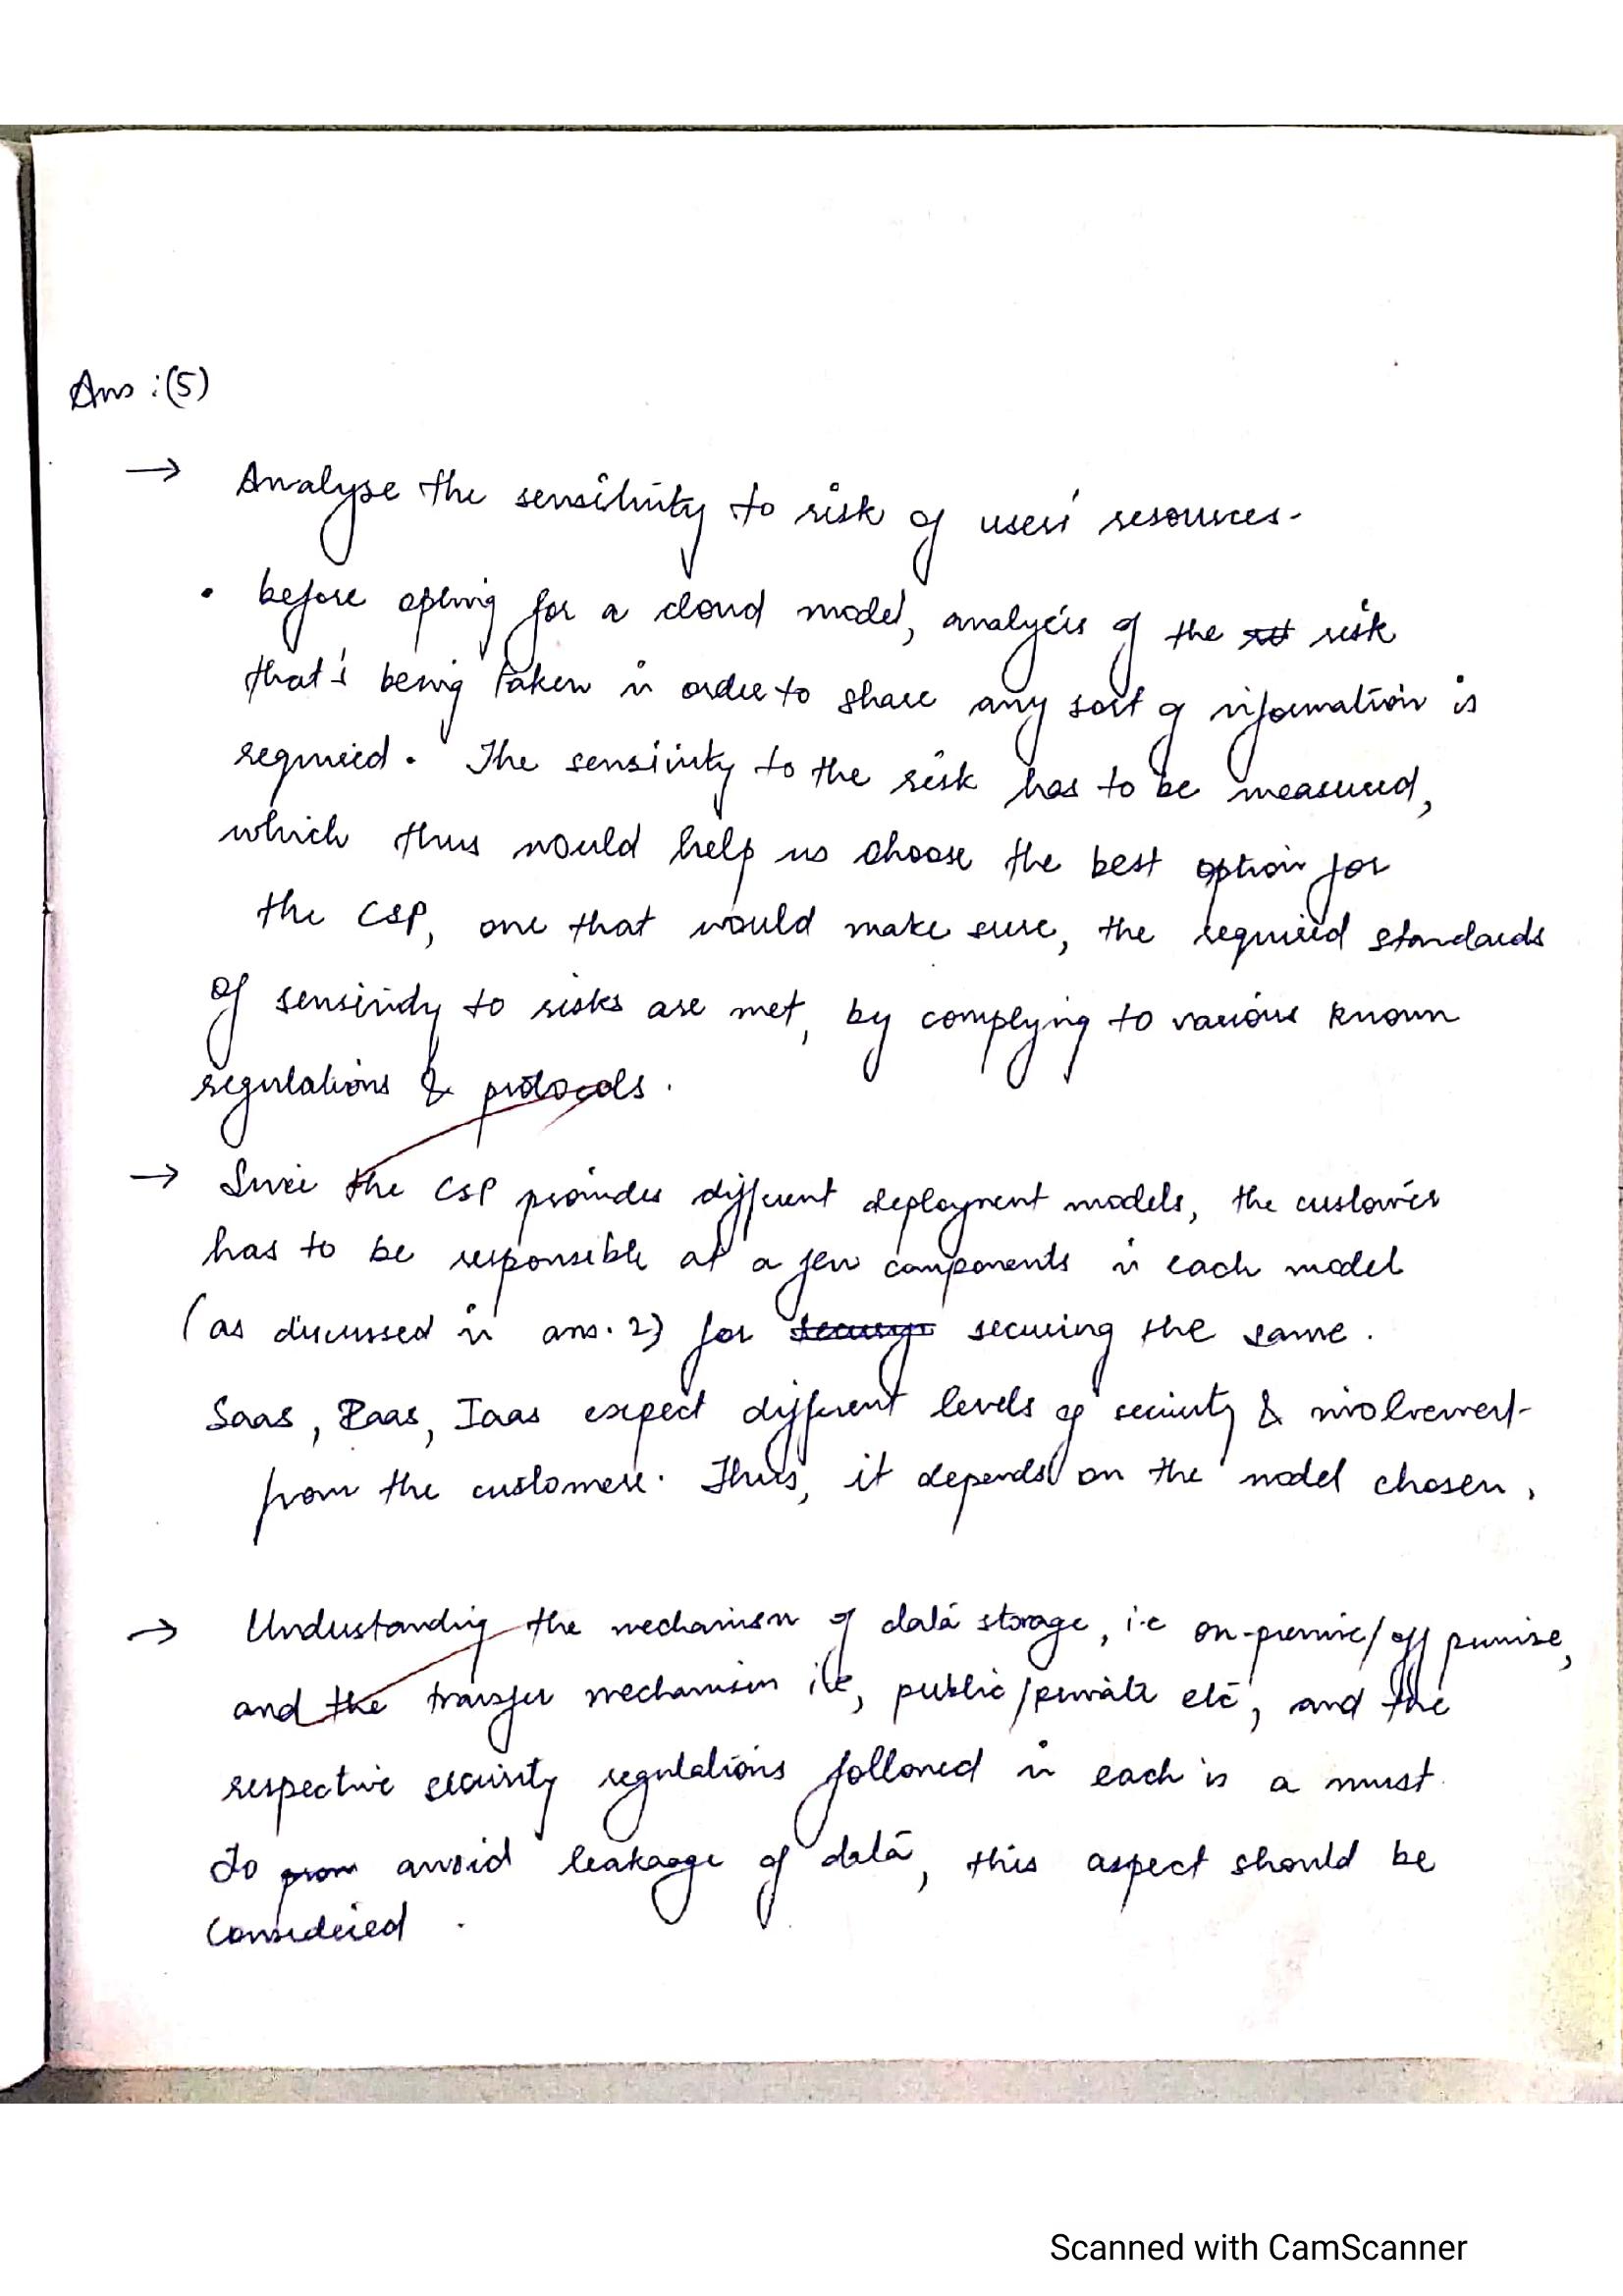 Ans :(5)
→ Analyse the sensitivity to risk of users' resources.
• before opting for a cloud model, analysis of the risk
that's being taken in order to share any sort of information is
required. The sensivity to the risk has to be measured,
which thus would help us choose the best option for
the CSP, one that would make sure, the required standards
of sensividy to risks are met, by complying to various known
regulations & protocols.
→ Since the CSP provides different deployment models, the customer
has to be responsible at a few components in each model
(as discussed in ans. 2) for securing the same.
Saas, Paas, Iaas expect different levels of security & involvement
from the customers. Thus, it depends on the model chosen.
→ Understanding the mechanism of data storage, i.e on-premise/off premise,
and the transfer mechanism i.e, public/private etc, and the
respective security regulations followed in each is a must
to avoid leakaage of data, this aspect should be
considered.
Scanned with CamScanner